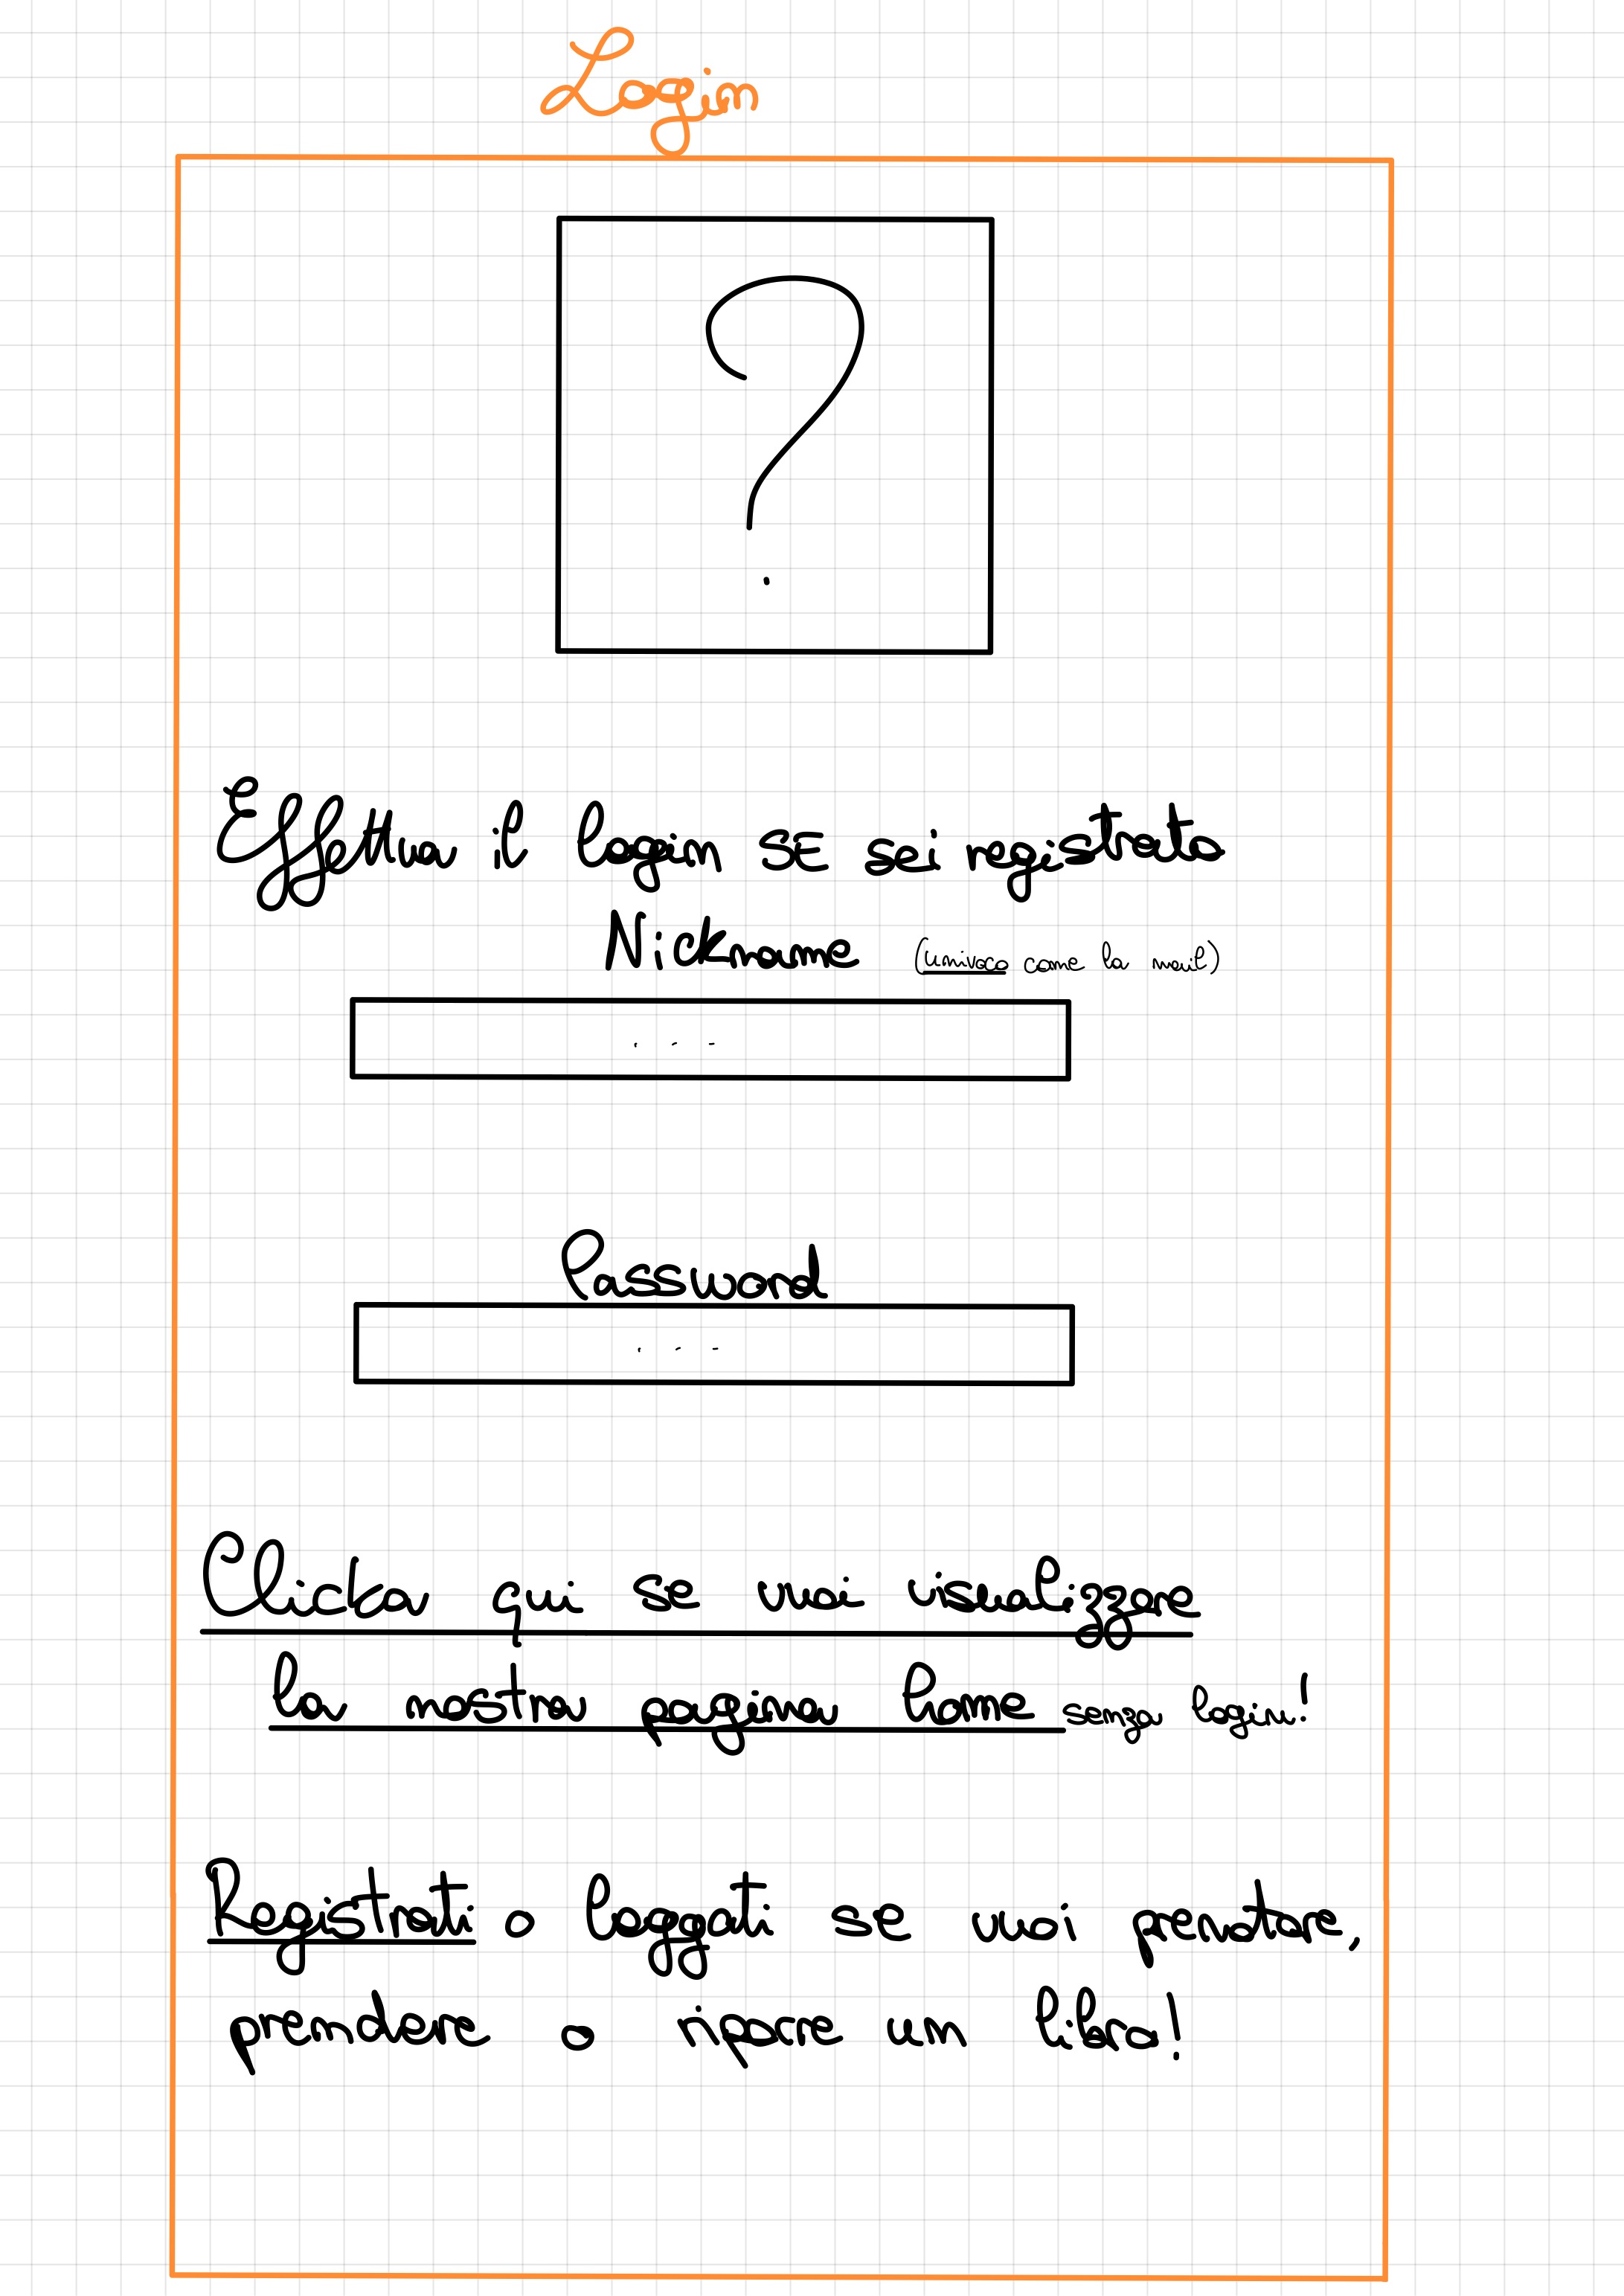 Login
?
Effettua il login SE sei registrato
Nickname (univoco come la mail)
. - -
Password
. - -
Clicka qui se vuoi visualizzare
la nostra pagina home senza login!
Registrati o loggati se vuoi prenotare,
prendere o riporre un libro!